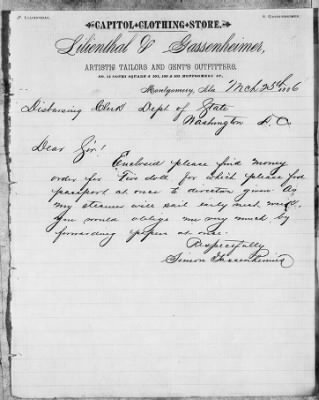 P. LILIENTHAL. S. GASSENHEIMER.
CAPITOL CLOTHING STORE.
Lilienthal & Gassenheimer,
ARTISTIC TAILORS AND GENT'S OUTFITTERS,
MONTGOMERY ST.,
Montgomery, Ala. Mch 25th 1886
Disbursing Clerk Dept of State
Washington D.C.
Dear Sir!
Enclosed please find money
order for Five doll for which please find
passport at once to direction given. As
my steamer will sail early next week
you would oblige me very much by
forwarding papers at once.
Respectfully
Simon Gassenheimer